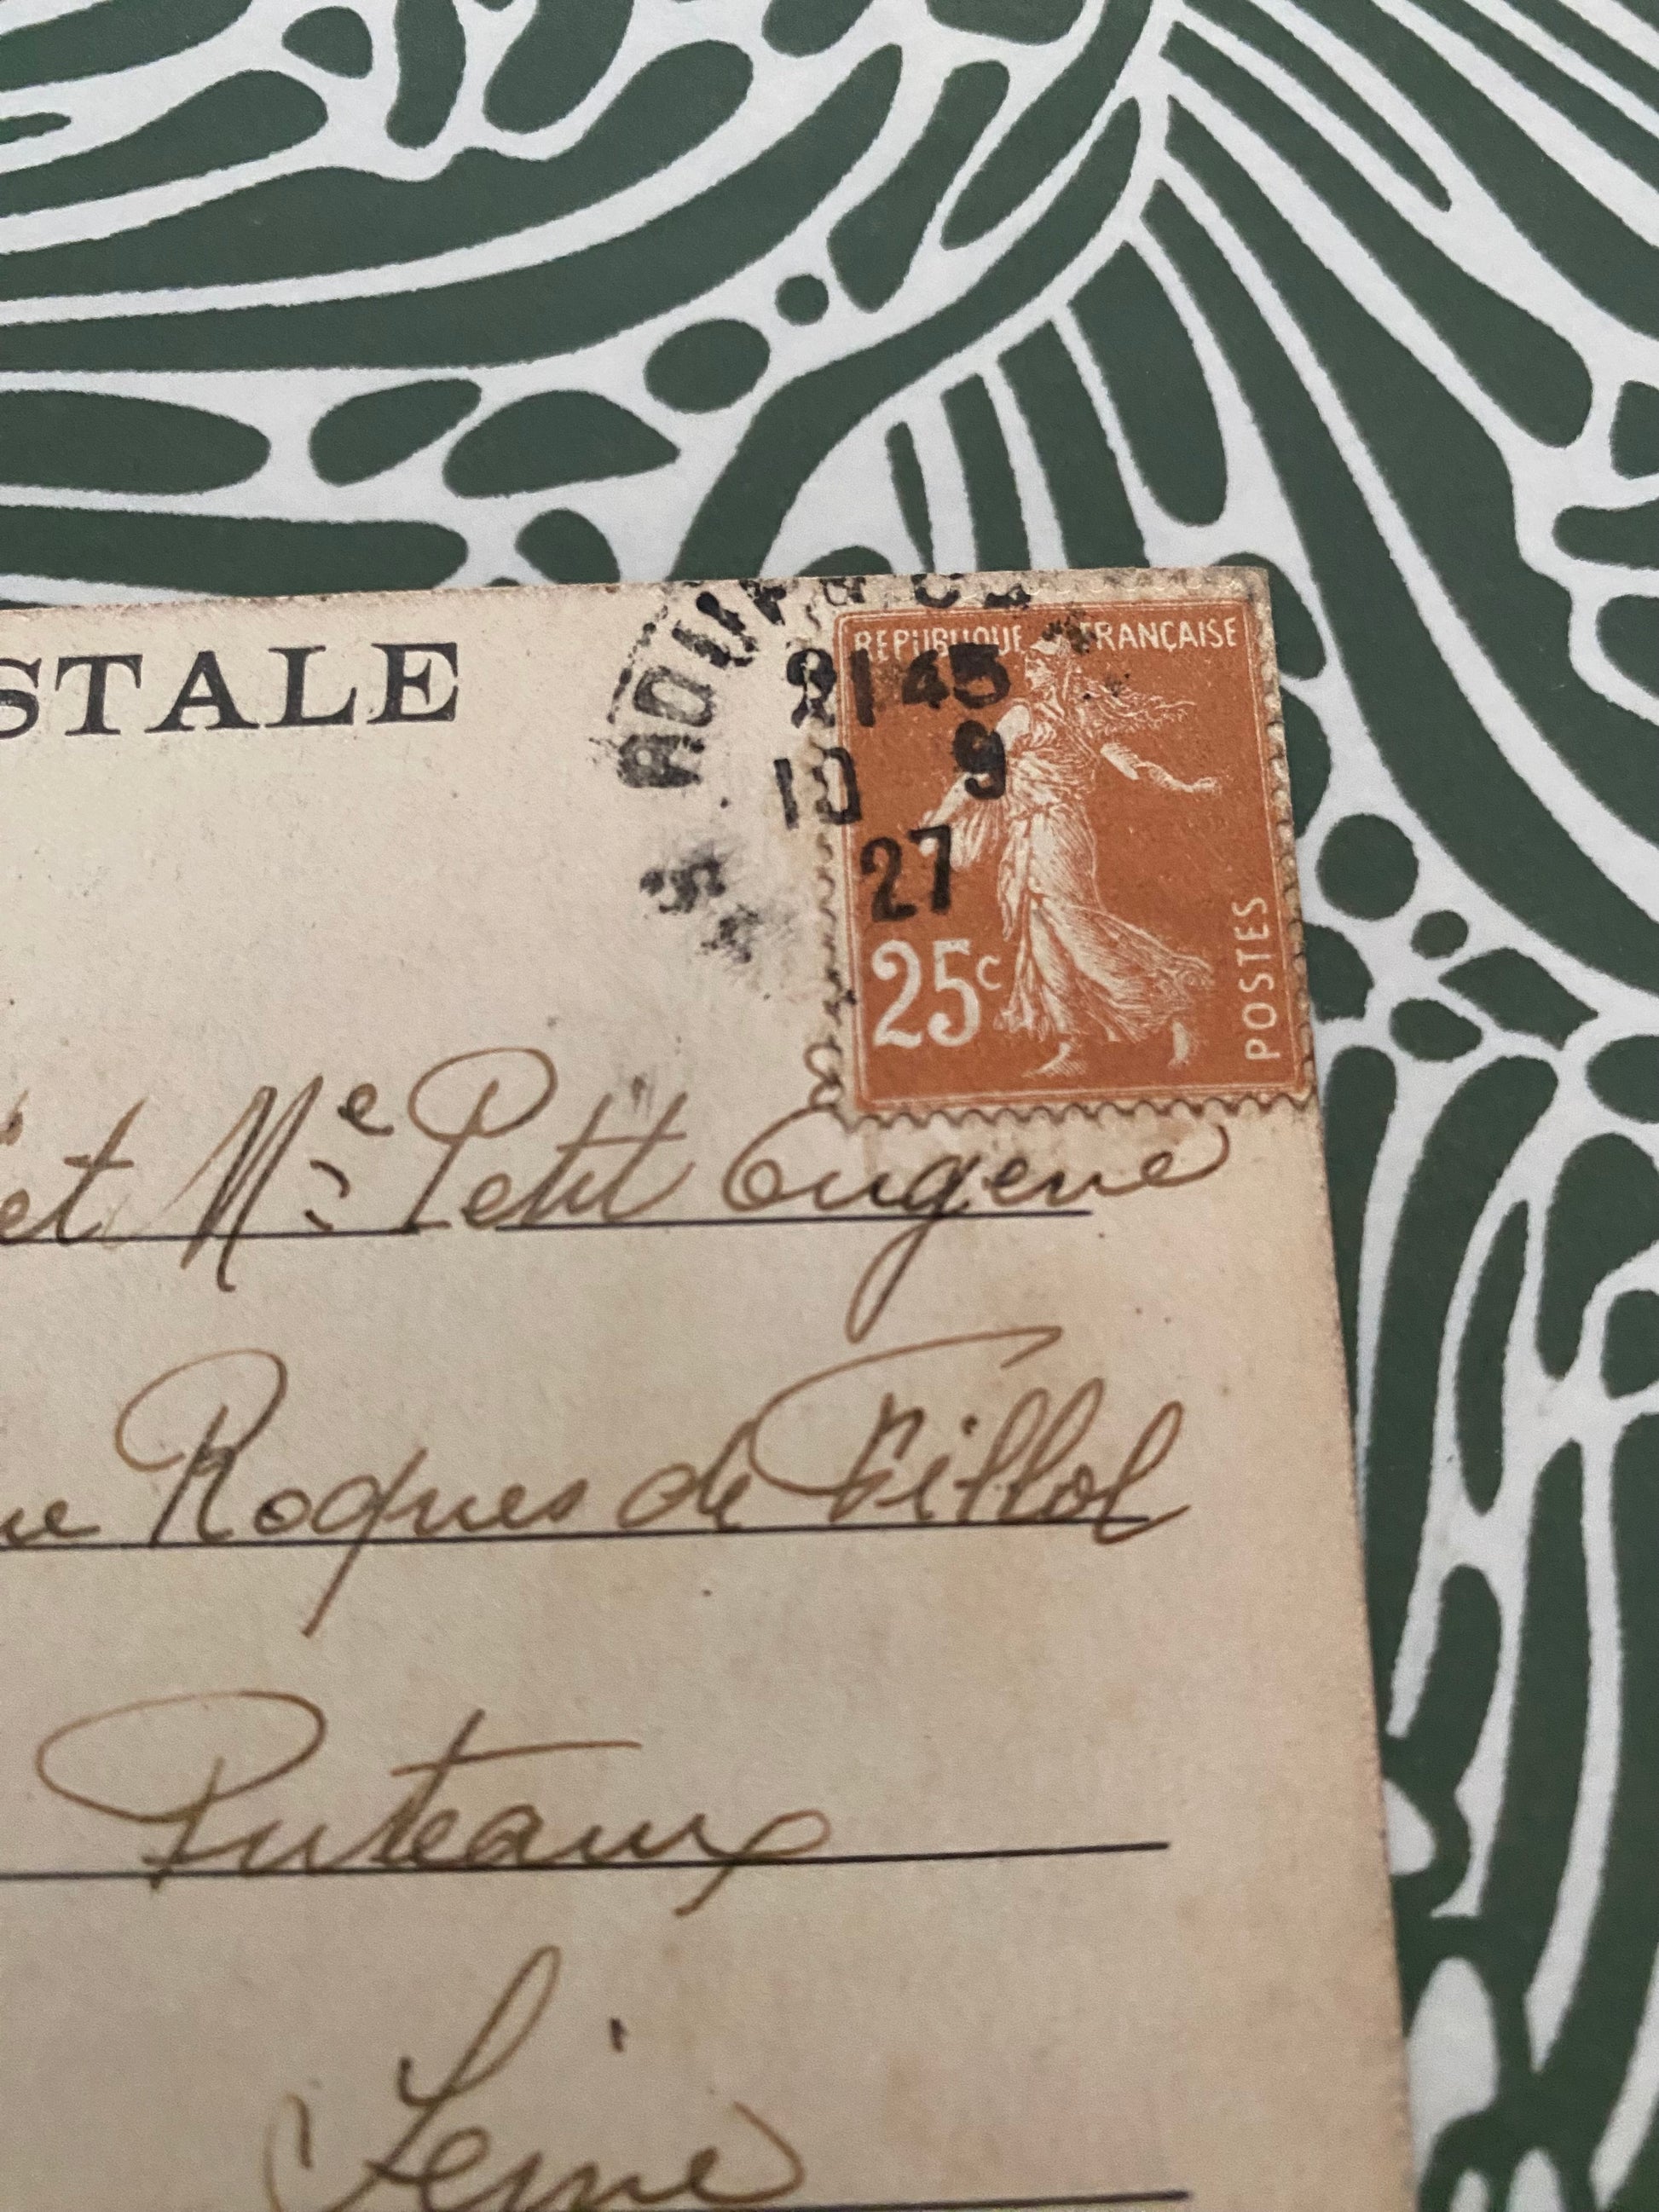 STALE
21 45
10 9
27
REPUBLIQUE FRANÇAISE
25c
POSTES
et Me Petit Eugene
ue Roques de Fillol
Puteaux
Seine